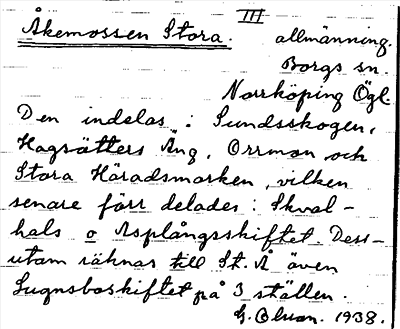 III
Åkemossen Stora. allmänning.
Borgs sn.
Norrköping Ögl.
Den indelas i Sundsskogen,
Hagsätters Äng, Orrmon och
Stora Häradsmarken, vilken
senare förr delades i Skval-
hals o Asplångsskiftet. Dess-
utom räknas till St. Å även
Lugnsboskiftet på 3 ställen.
G. Olson. 1938.